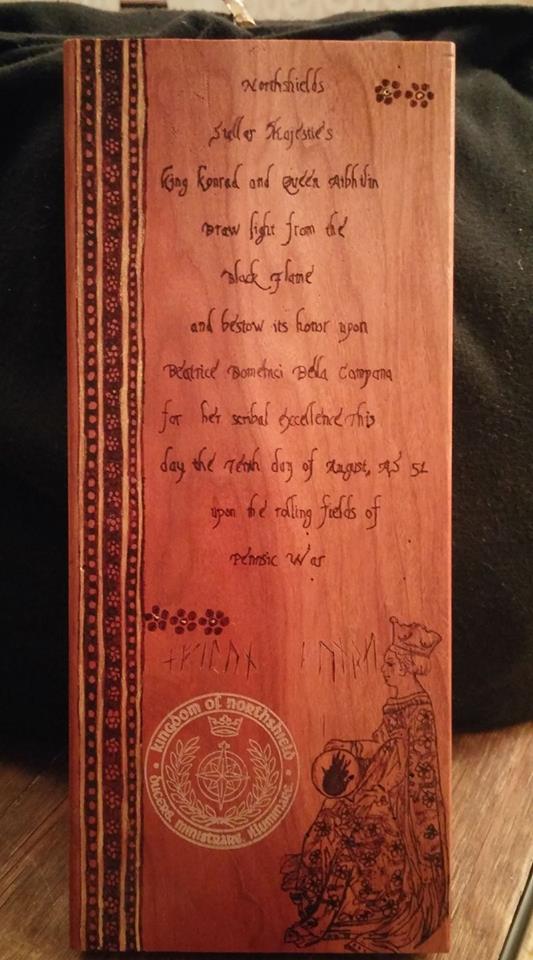 Northshields
Stellar Majestie's
King Konrad and Queen Aibhilin
Draw light from the
Black Flame
and bestow its honor upon
Beatrice Domenici Della Campana
for her scribal excellence This
day the Tenth day of August, AS 51
upon the rolling fields of
Pennsic War
kingdom of northshield
ducere, ministrare, illuminare